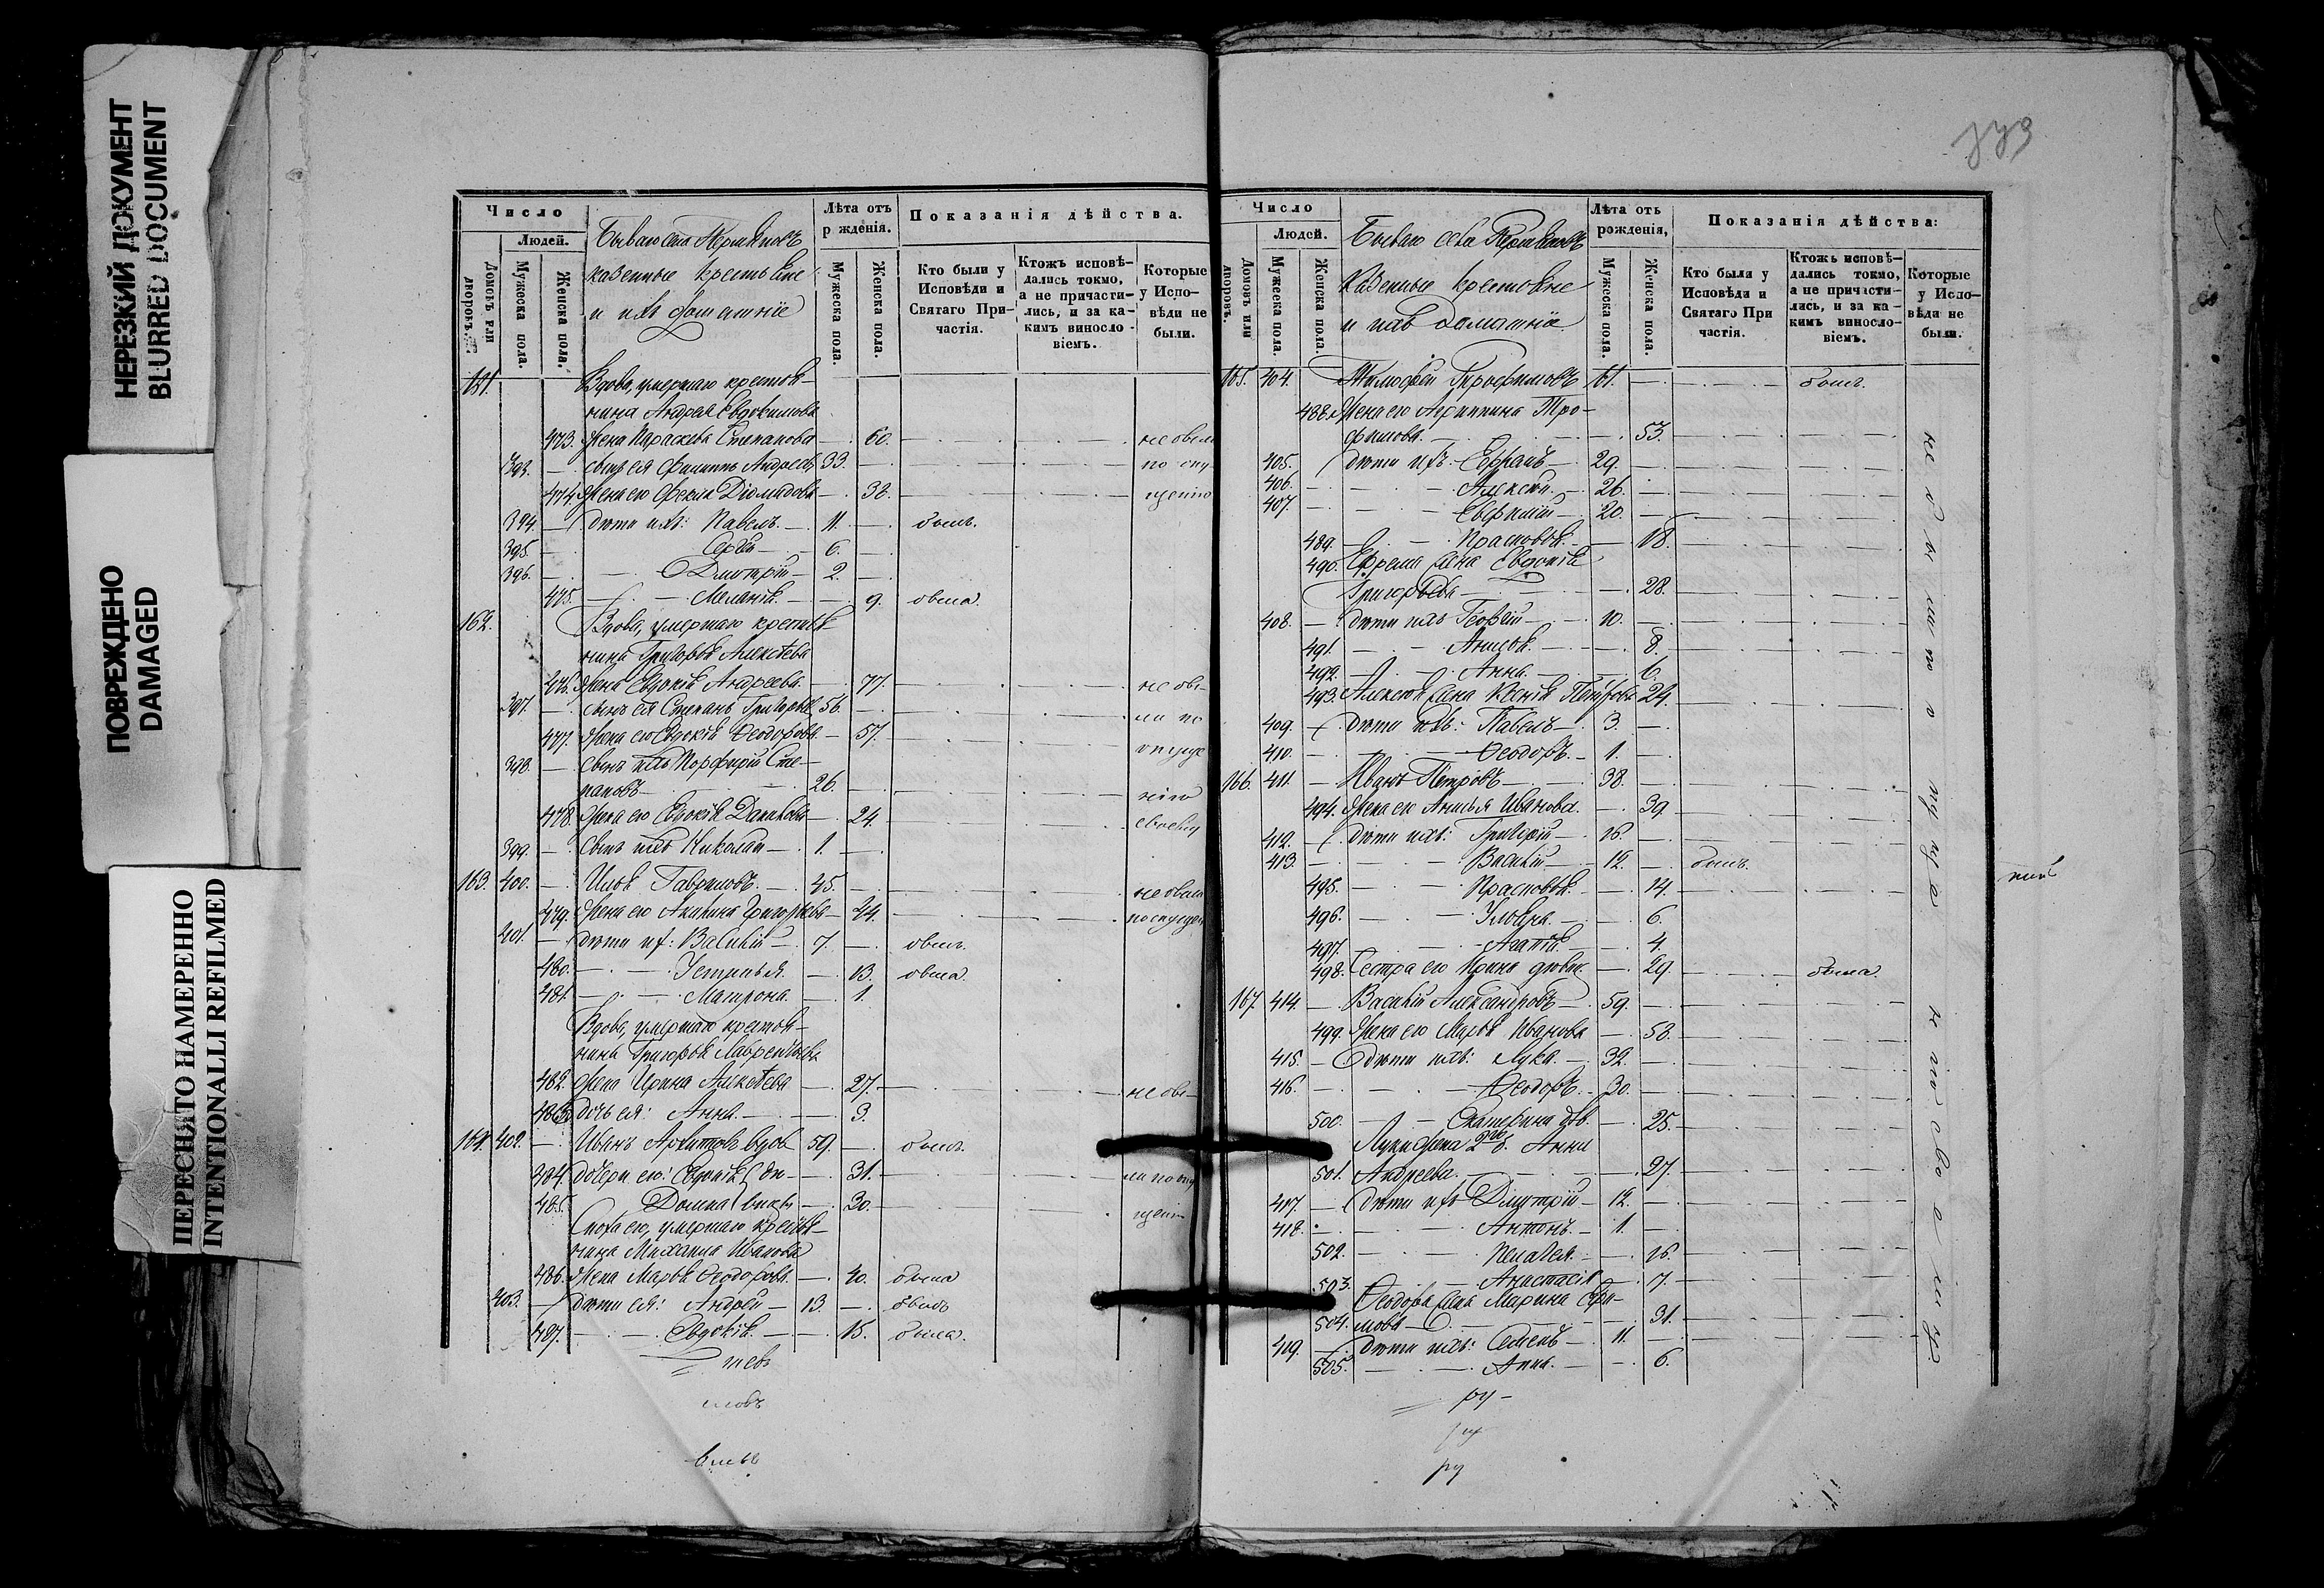 НЕРЕЗКИЙ ДОКУМЕНТ
BLURRED DOCUMENT
ПОВРЕЖДЕНО
DAMAGED
ПЕРЕСНЯТО НАМЕРЕННО
INTENTIONALLI REFILMED
Число
Людей.
Домовъ или дворовъ.
Мужеска пола.
Женска пола.
казенные крестьяне
и ихъ домашніе
Лѣта отъ
р жденія.
Мужеска пола.
Женска пола.
Показанія дѣйства.
Кто были у
Исповѣди и
Святаго При-
частія.
Ктожъ исповѣ-
дались токмо,
а не причасти-
лись, и за ка-
кимъ виносло-
віемъ.
Которые
у Испо-
вѣди не
были.
161. Вдова, умершаго крестья-
нина Андрея Евдокимова
473. жена Параскева Степанова — 60. не были
393. — сынъ ея Филиппъ Андреевъ 33. — по опу-
474. жена его Фекла Діомидова — 38. щенію
394. — дѣти ихъ: Павелъ — 11. — былъ.
395. — Сергѣй — 6. —
396. — Дмитрій — 2. —
475. — Меланія — 9. была.
162. Вдова, умершаго крестья-
нина Григорья Алексѣева
476. жена Евдокія Андреева — 77. не бы-
397. — сынъ ея Стефанъ Григорьевъ 56. — ли по
477. жена его Евдокія Ѳеодорова — 57. опуще
398. — сынъ ихъ Порфирій Сте-
пановъ — 26. — нію
478. жена его Евдокія Данилова — 24. своему
399. — сынъ ихъ Николай — 1. —
163. 400. — Илья Гавриловъ — 45. — не были
479. жена его Акилина Григорьева — 44. по опущен
401. — дѣти их: Василій — 7. — былъ.
480. — Устинья — 13. была.
481. — Матрона — 1.
Вдова, умершаго крестья-
нина Григорья Лаврентьева
482. жена Ирина Алексѣева — 27. не бы-
483. дочь ея: Анна — 3.
164. 402. — Иванъ Архиповъ вдов. 59. — былъ.
484. дочери его: Евдокія дѣ- — 31. ли по опу
485. Домна вицы — 30. щенію
Сноха его, умершаго крестья-
нина Михаила Иванова
486. жена Марья Ѳеодорова — 40. была
403. — дѣти ея: Андрей — 13. — былъ
487. — Евдокія — 15. была.
Число
Людей.
Домовъ или дворовъ.
Мужеска пола.
Женска пола.
казенные крестьяне
и ихъ домашніе
Лѣта отъ
рожденія,
Мужеска пола.
Женска пола.
Показанія дѣйства:
Кто были у
Исповѣди и
Святаго При
частія.
Ктожъ исповѣ-
дались токмо,
а не причасти-
лись, и за ка-
кимъ виносло-
віемъ.
Которые
у Испо-
вѣди не
были.
165. 404. Тимофей Трофимовъ 61. — былъ.
488. жена его Агриппина Тро-
фимова — 53.
405. дѣти ихъ: Ефремъ — 29. —
406. — Алексѣй — 26. —
407. — 20. —
489. — Прасковья — 18.
490. Ефрема жена Евдокія
Григорьева — 28.
408. — дѣти ихъ Георгій — 10. —
491. — Анисья — 8.
492. — Анна — 6.
493. Алексѣя жена Ксенія Петрова 24.
409. — дѣти ихъ: Павелъ — 3. —
410. — Ѳеодоръ — 1. —
166. 411. — Иванъ Петровъ — 38. —
494. жена его Анисья Иванова — 39.
412. — дѣти ихъ: Григорій — 16. —
413. — Василій — 12. — былъ.
495. — Прасковья — 14.
496. — Ульяна — 6.
497. — Агапія — 4.
498. Сестра его Ирина дѣвиц. — 29. была.
167. 414. — Василій Александровъ — 59. —
499. жена его Марья Иванова — 58.
415. — дѣти ихъ: Лука — 32. —
416. — Ѳеодоръ — 30. —
500. — Екатерина дѣв. — 25.
Луки жена 2го б. Анна
501. Андреева — 27.
417. — дѣти ихъ Дмитрій — 12. —
418. — Антонъ — 1. —
502. — Пелагея — 16.
503. — Анастасія — 7.
Ѳеодора жена Марина
504. — 31.
419. — дѣти ихъ: Семенъ — 11. —
505. — Анна — 6.